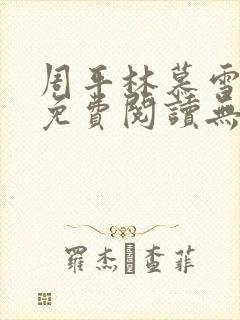 周平林慕雪
免費閱讀無
羅杰·查菲